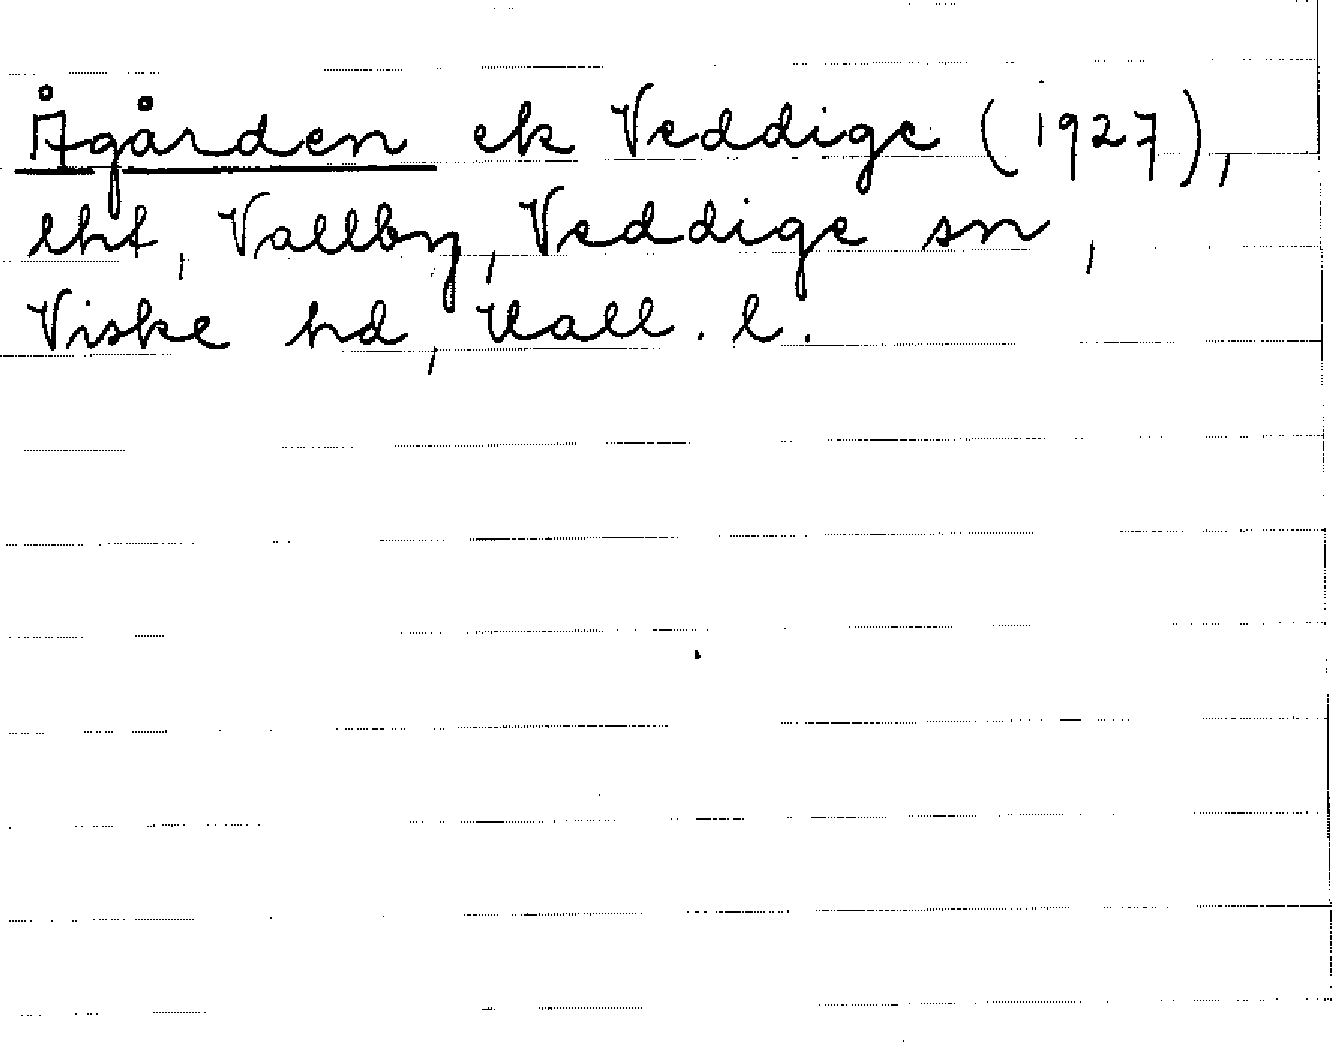 Ågården ek Veddige (1927),
lht, Vallby, Veddige sn,
Viske hd, Hall. l.